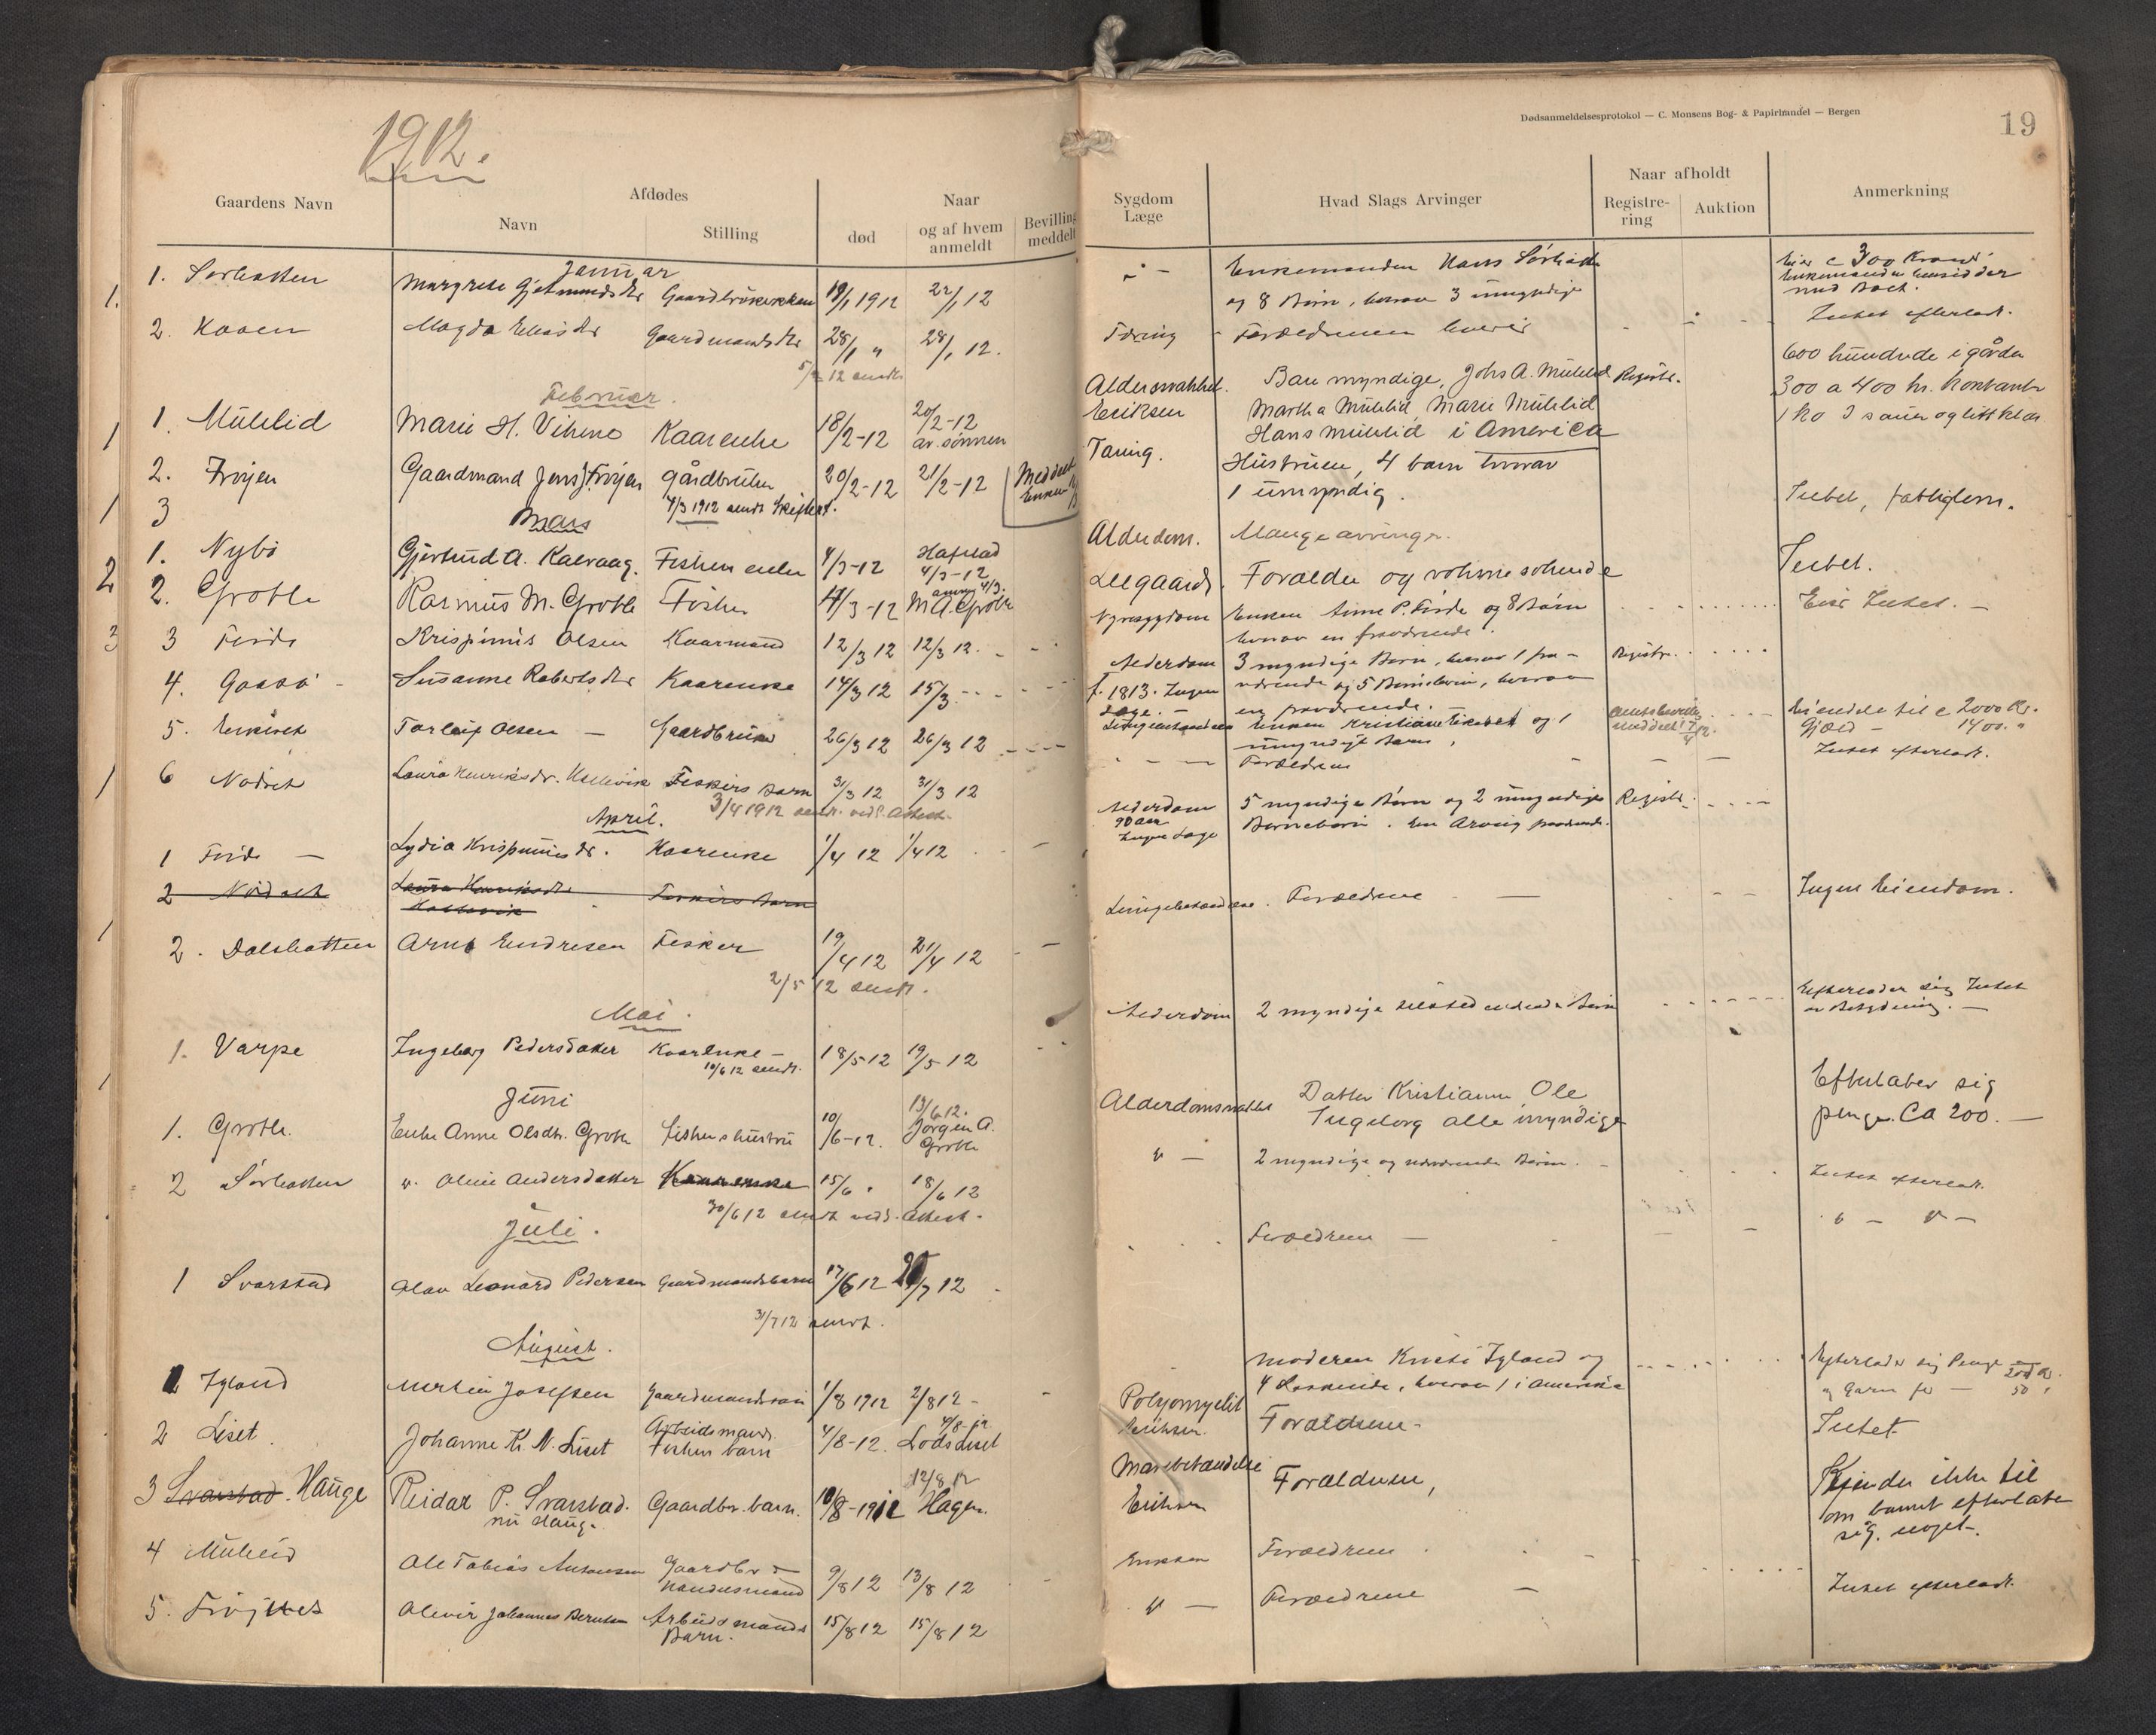 1912.
Gaardens Navn
Afdødes
Navn
Stilling
Naar
død
og af hvem anmeldt
Bevilling meddelt
Januar
1. 1. Sørbotten Margrete Gjetmundsdtr Gaardbrukerkone 19/1 1912 22/1 12
2. Kaaen Magda Eliasdtr Gaardmandsdtr 28/1 " 28/1 12.
5/2 12 sendt
Februar.
1 1. Mulelid Marie H. Vihene Kaarenke 18/2-12 20/2-12 av sønnen
2. Frøjen Gaardmand Jens J. Frøjen gårdbruker 20/2-12 21/2-12 Meddelt Enken
1 3 4/3 1912 sendt Skifteret.
Mars
1. Nybø Gjertrud A. Kalvaag. Fisher enke 4/3-12 Hafstad 4/3-12
2 2. Grotle Rasmus M. Grotle Fisker 4/3-12 M A Grotle
3 3 Førde Krispinus Olsen Kaarmand 12/3 12 12/3 12.
4. Gaasø - Susanne Robertsdtr Kaarenke 14/3 12 15/3
5. Torleif Olsen - Gaardbruker 26/3 12 26/3 12
1 6 Nødset Laura Henriksdr. Fiskers barn 31/3 12 31/3 12
3/4 1912 sendt. veds. Attest.
April.
1 Førde - Lydia Krispinusdr. Kaarenke 1/4 12 1/4 12
2 Nødset Laura Henriksdtr Fiskers Barn
1 2. Dalsbotten Arne Endresen Fisker 19/4 12 21/4 12
2/5 12 sendt.
Mai.
1. Varpe Ingeborg Pedersdatter Kaarenke - 18/5 12 19/5 12
10/6 12 sendt.
Juni
1. Grotle. Enke Anne Olsdtr. Grotle fiskers hustru 10/6-12. 13/6 12. Jørgen A. Grotle
2 Sørbotten " Oline Andersdatter Kaarenke 15/6 " 18/6 12
30/6 12 sendt veds. Attest.
Juli.
1 Svarstad Olav Leonard Pedersen Gaardmandsbarn 17/6 12 20/7 12
31/7 12 sendt.
August.
1 Igland Martin Josefsen Gaardmandssøn 1/8 1912 2/8 12 -
2 Liset. Johanne K. N. Liset Arbeidsmand. Fisker barn 4/8-12. 4/8-12 Lods Liset
3 Svarstad. Hauge Reidar P. Svarstad. nu Haug. Gaardbr. barn. 10/8-1912 12/8 12 Hagen.
4 Mulelid Ole Tobias Antonsen Gaardbr & Handelsmand 9/8 12 13/8 12
5. Frøjnes Olevir Johannes Berntsen Arbeidsmands Barn. 15/8 12 15/8 12
Dødsanmeldelsesprotokol — C. Monsens Bog- & Papirhandel — Bergen
19
Sygdom Læge
Hvad Slags Arvinger
Naar afholdt
Registrering
Auktion
Anmerkning
Enkemanden Hans Sørbotten
og 8 Børn, hvorav 3 umyndige
Eier c 300 Kroner
Enkemanden hensidder
med Boet.
Tæring - Forældrene lever
Intet efterladt.
Alderssvakhet. Eriksen
Bare myndige, Johs A. Mulelid
Martha Mulelid Marie Mulelid
Hans Mulelid i America
Registr.
600 hundrede i gården
300 a 400 kr. kontanter
1 ko 3 sauer og litt klær
Tæring.
Hustruen, 4 barn hvorav
1 umyndig.
Intet, fattiglem.
Alderdom. Mange arvinger.
Leegaard. Forælder og voksne søskende
Intet.
Nyresygdom Enken Anne P. Førde og 8 Børn
hvorav en fraværende.
Eier Intet. -
Alderdom 3 myndige Børn, hvorav 1 fra-
værende og 5 Børnebørn, hvorav
en fraværende.
f. 1813. Ingen Læge. -
Registr.
Lungebetændelse Enken og 1
umyndigt Barn.
Eiendele til c 2000 Kr.
Gjæld - 1400. "
Forældrene
Intet efterladt.
Alderdom 90 aar Ingen Læge
5 myndige Børn og 2 umyndige
Børnebørn. En Arving fraværende.
Registr.
Lungebetændelse. Forældrene -
Ingen Eiendom.
Alderdom 2 myndige tilstedeværende Børn
Efterlader sig Intet
av Betydning. -
Alderdomssvakhet Datter Kristianne Ole
Ingeborg alle myndige
Efterlater sig
penge. Ca 200. -
" - 2 myndige og nærværende Børn.
Intet efterladt.
Forældrene -
" - " -
Moderen Kristi Igland og
4 Søskende, hvorav 1 i Amerika
Efterlader sig Penge 200 Kr.
og Garn for - 50 "
Polyomyelit Eriksen. Forældrene -
Intet
Mavebetændelse Eriksen Forældrene,
Kjender ikke til
om barnet efterlater
sig. noget.
Eriksen Forældrene.
" - Forældrene -
Intet efterladt.